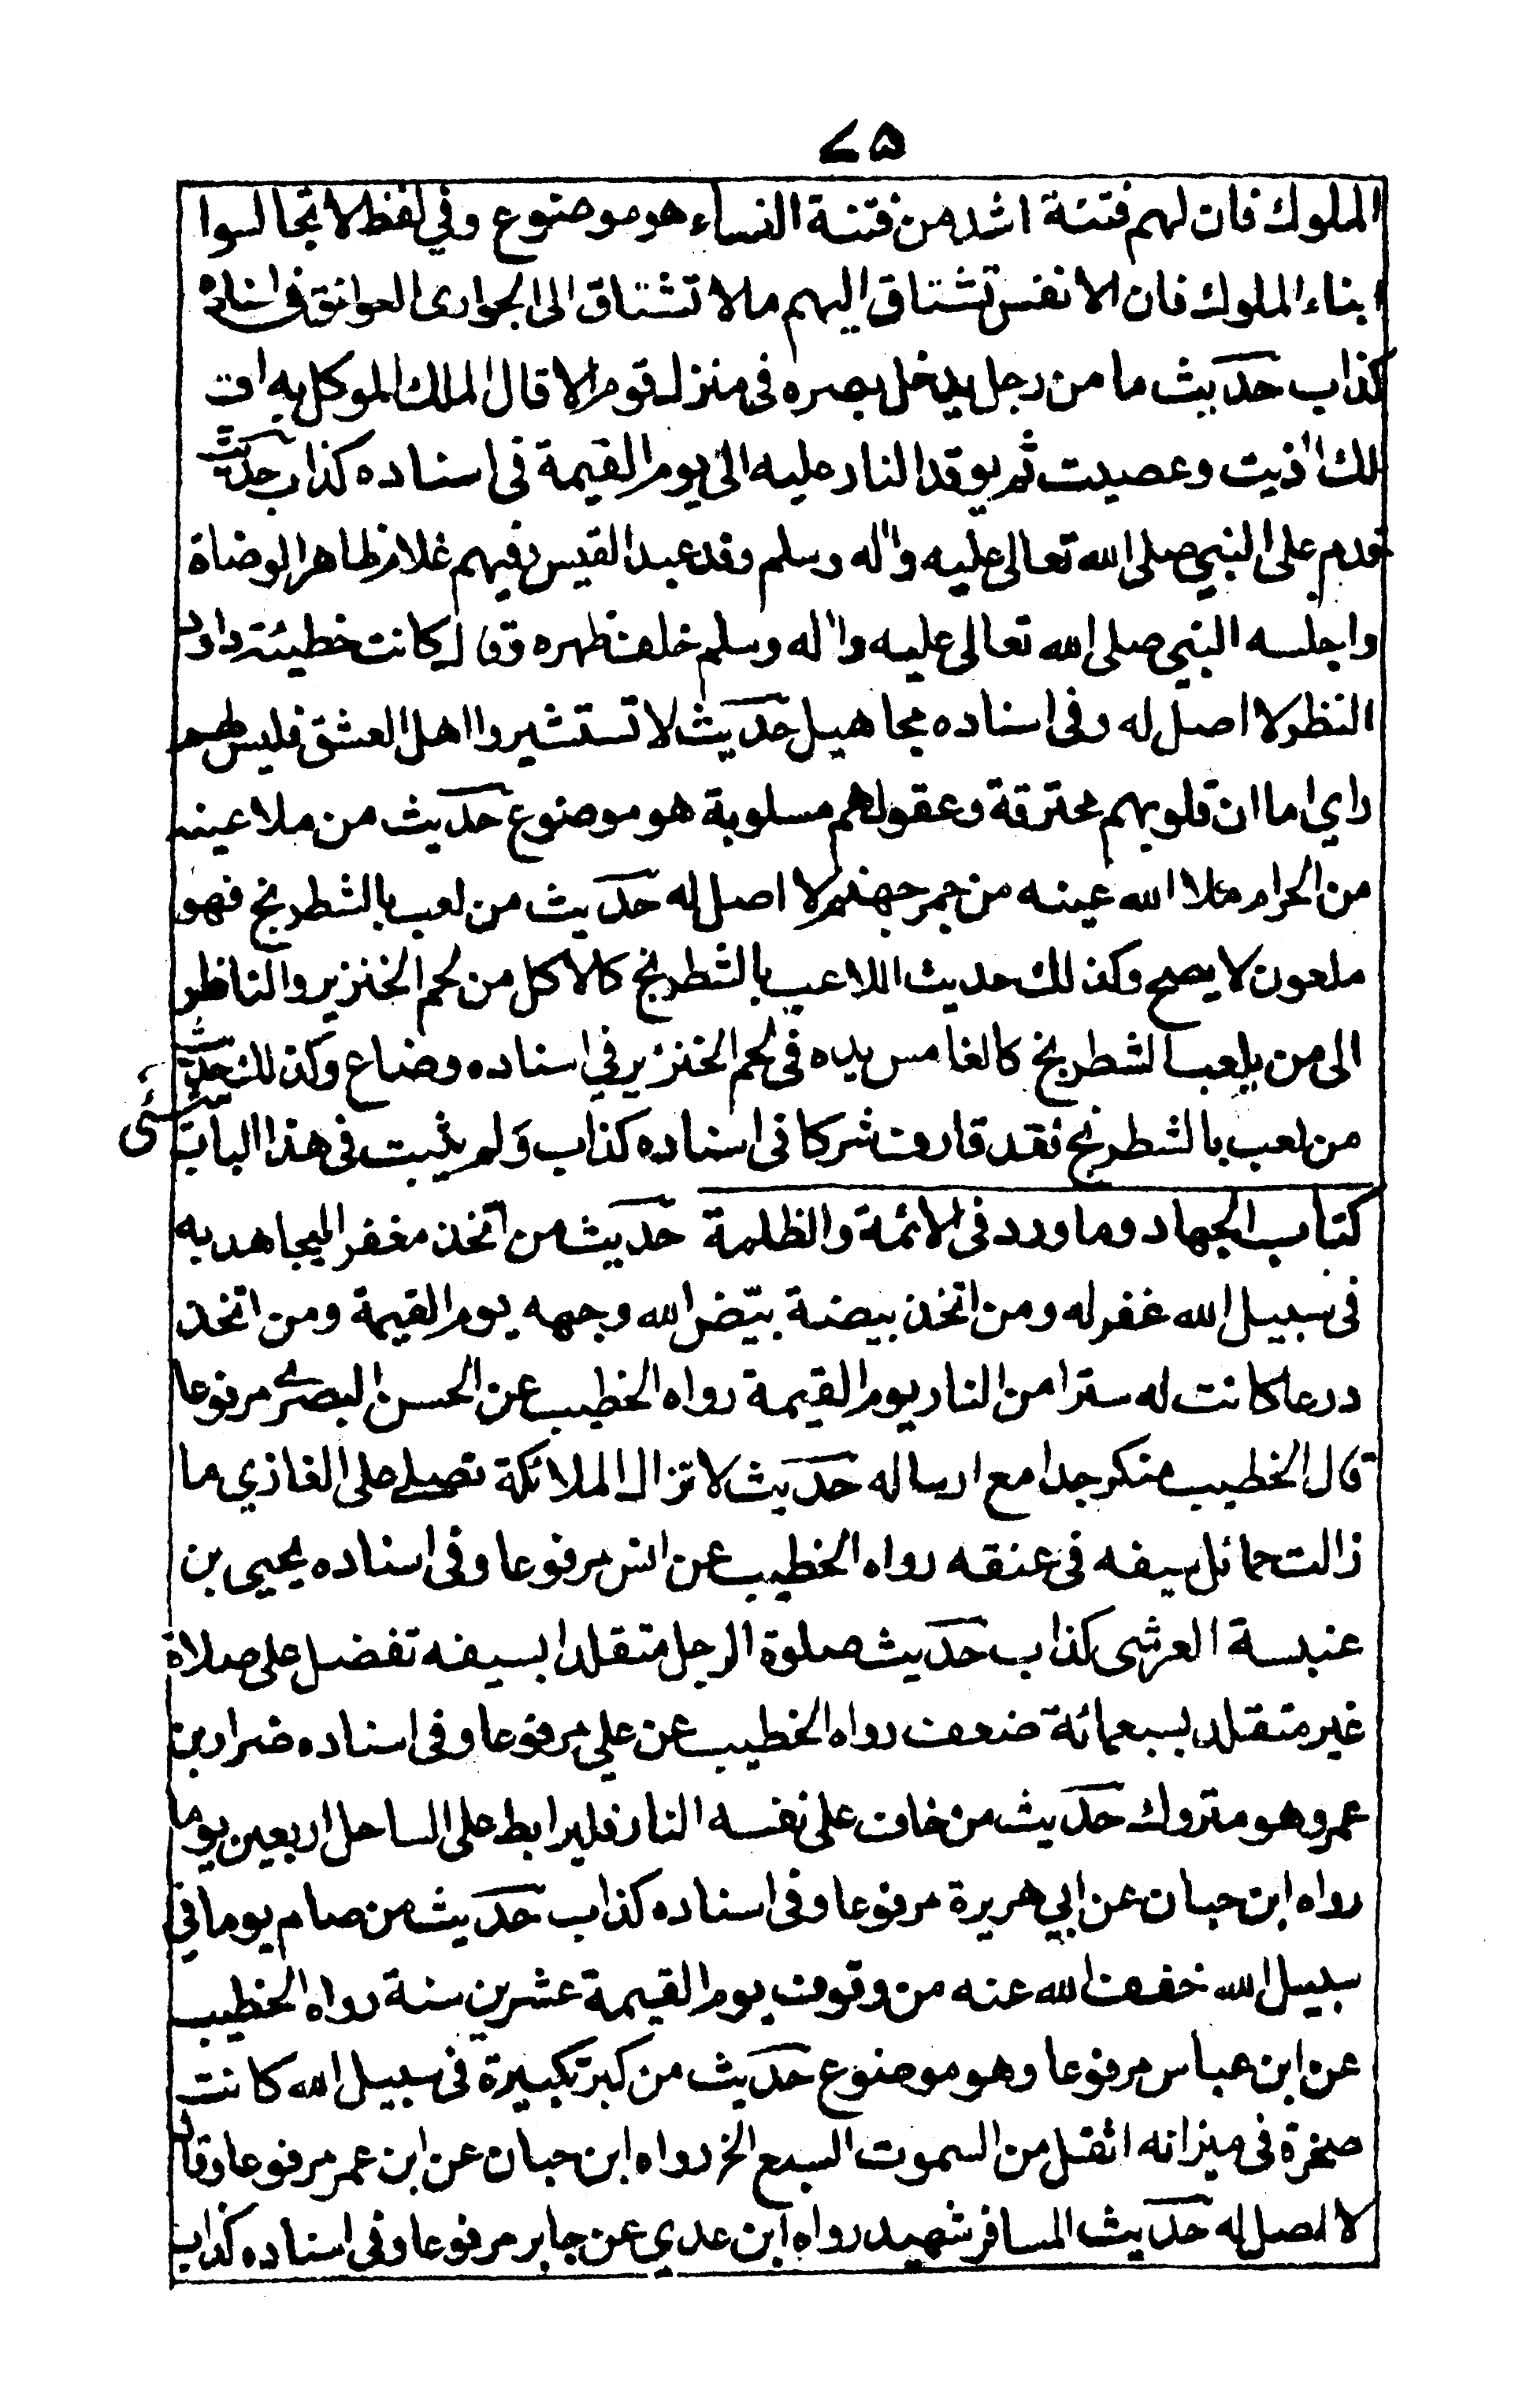 ٧٥
الملوك فان لهم فتنة اشد من فتنة النساء هو موضوع وفي لفظ لا تجالسوا
ابناء الملوك فان الانفس تشتاق اليهم ما لا تشتاق الى الجوارى العواتق فى اسناده
كذاب حديث ما من رجل يدخل بصره فى منزل قوم الا قال الملك الموكل به اف
لك اذيت وعصيت ثم يوقد النار عليه الى يوم القيمة فى اسناده كذاب حديث
قدم على النبي صلى الله تعالى عليه واله وسلم وفد عبد القيس وفيهم غلام ظاهر الوضاة
واجلسه النبي صلى الله تعالى عليه واله وسلم خلف ظهره وقال كانت خطيئة داود
النظر لا اصل له وفى اسناده مجاهيل حديث لا تستشيروا اهل العشق فليس لهم
راي اما ان قلوبهم محترقة وعقولهم مسلوبة هو موضوع حديث من ملا عينه
من الحرام ملا الله عينه من جمر جهنم لا اصل له حديث من لعب بالشطرنج فهو
ملعون لا يصح وكذلك حديث اللاعب بالشطرنج كالاكل من لحم الخنزير والناظر
الى من يلعب بالشطرنج كالغامس يده فى لحم الخنزير في اسناده وضاع وكذلك حديث
من لعب بالشطرنج فقد قارف شركا فى اسناده كذاب ولم يثبت فى هذا الباب شئ
كتاب الجهاد وما ورد فى الائمة والظلمة حديث من اتخذ مغفرا ليجاهد به
فى سبيل الله غفر له ومن اتخذ بيضة بيّض الله وجهه يوم القيمة ومن اتخذ
درعا كانت له سترا من النار يوم القيمة رواه الخطيب عن الحسن البصرى مرفوعا
قال الخطيب منكر جدا مع ارساله حديث لا تزال الملائكة تصلى على الغازي ما
زالت حمائل سيفه فى عنقه رواه الخطيب عن انس مرفوعا وفى اسناده يحيى بن
عنبسة القرشى كذاب حديث صلوة الرجل متقلدا بسيفه تفضل على صلاة
غير متقلد بسبعمائة ضعف رواه الخطيب عن علي مرفوعا وفى اسناده ضرار بن
عمرو هو متروك حديث من خاف على نفسه النار فليرابط على الساحل اربعين يوما
رواه ابن حبان عن ابي هريرة مرفوعا وفى اسناده كذاب حديث من صام يوما في
سبيل الله خفف الله عنه من وقوف يوم القيمة عشرين سنة رواه الخطيب
عن ابن عباس مرفوعا وهو موضوع حديث من كبر تكبيرة فى سبيل الله كانت
صخرة فى ميزانه اثقل من السموت السبع الخ رواه ابن حبان عن ابن عمر مرفوعا وقال
لا اصل له حديث المسافر شهيد رواه ابن عدي عن جابر مرفوعا وفى اسناده كذاب